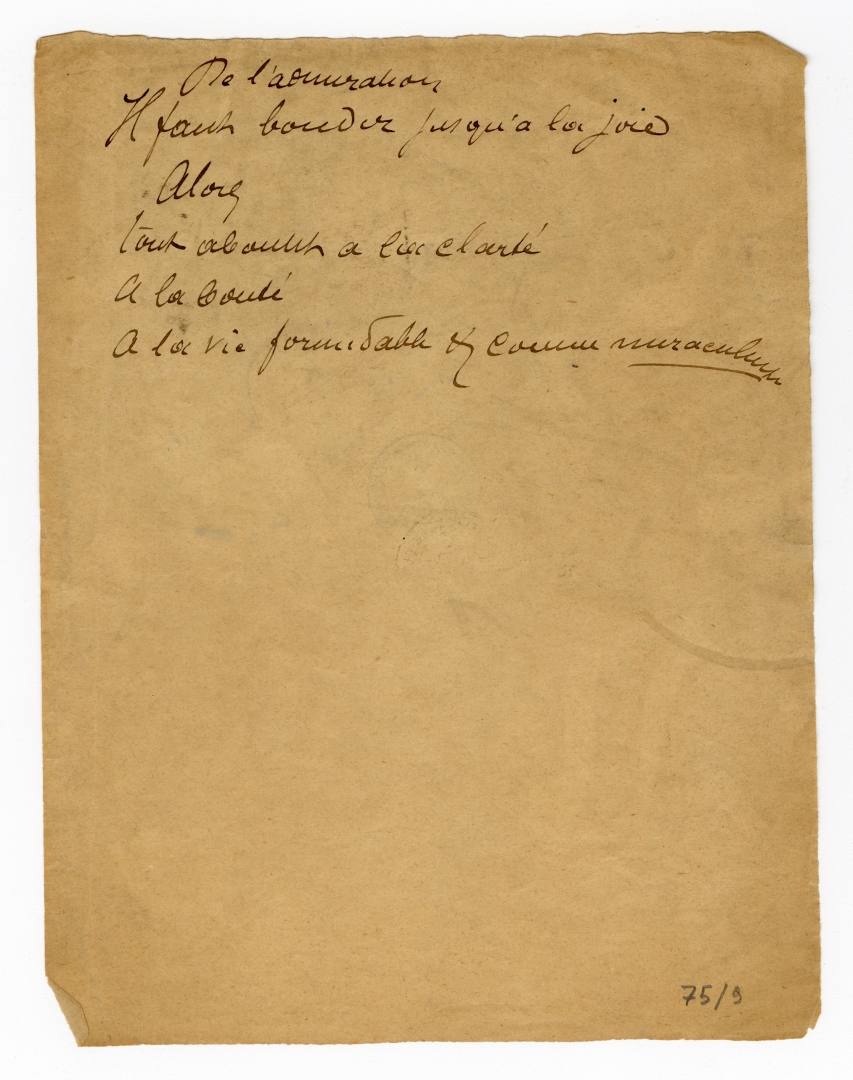 De l'admiration
Il faut bondir jusqu'a la joie
Alors
tout aboutit a la clarté
A la bonté
A la vie formidable & comme miraculeuse
75/9